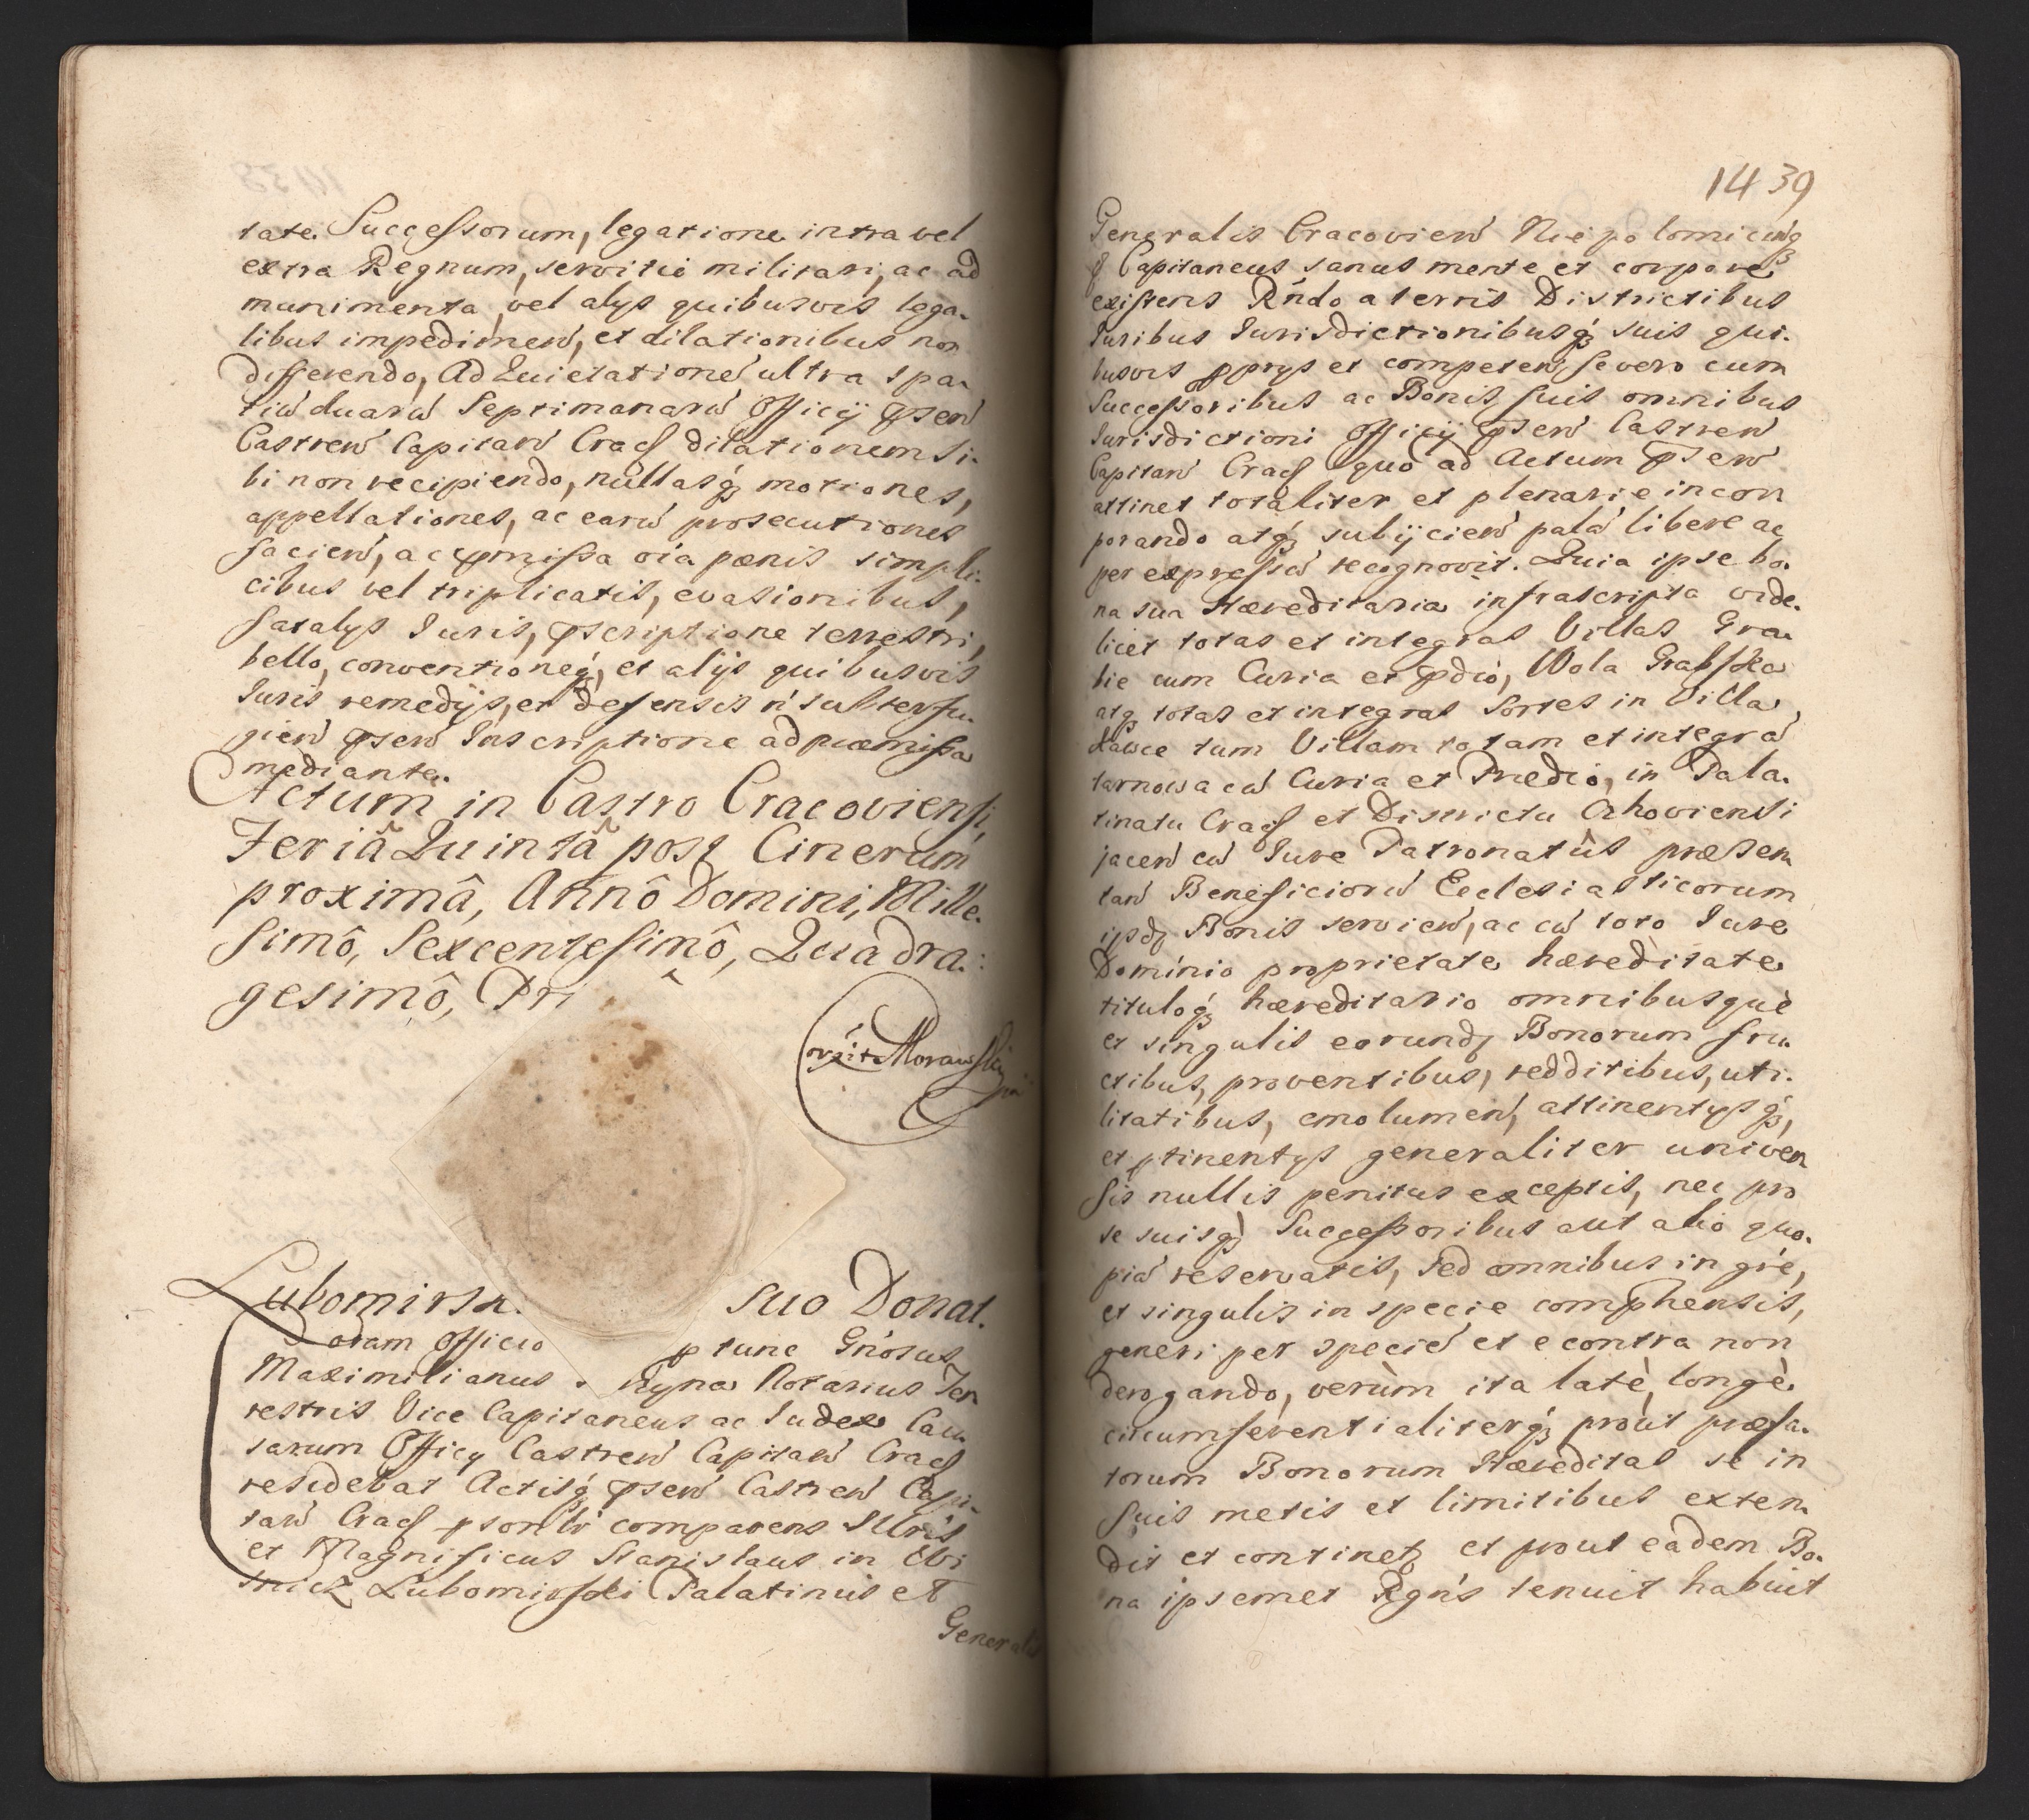 tate Successorum, legatione intra vel
extra Regnum, servitio militari, ac ad
munimenta, vel alijs quibusvis lega-
libus impedimeń, et dilationibus non
differendo, Ad Quietationé ultra spa-
tiú duarú Septimanarú Officij pseń
Castreń Capitań Crac dilationem si-
bi non recipiendo, nullasq́ motiones,
appellationes, ac earú prosecutiones
facień, ac pmissa oía pænis simpli-
cibus vel triplicatis, evasionibus,
fatalijs Juris, pscriptione terrestri,
bello, conventioneq́, et alijs quibusvis
Juris remedijs, et defensis ń subterfu-
gień pseń Inscriptione ad præmissa
mediante.
Actum in Castro Cracoviensi,
Feriâ Quintâ post Cinerum
proximâ, Annô Domini, Mille-
simô, Sexcentesimô, Quadra-
gesimô, Pri
Morawski
Lubomirsk. suo Donat.
Coram Officio p tunc Gńosus
Maximilianus . hyna Notarius Ter
restris Vice Capitaneus ac Judex Cau-
sarum Officij Castreń Capitań Crac
residebat Actisq́ pseń Castreń Capi-
tań Crac psonlr comparens Illris
et Magnificus Stanislaus in Wi
snicz Lubomirski Palatinus et
Generalis
1439
Generalis Cracovień Niepolomiceńq́
Capitaneus sanus mente et corpore
existens Rńdo a terris Districtibus
Juribus Jurisdictionibusq́ suis qui-
busvis pprijs et competeń, se vero cum
Successoribus ac Bonis suis omnibus
Jurisdictioni Officij pseń Castreń
Capitań Crac quo ad Actum pseń
attinet totaliter et plenarie incor
porando atq́ subijcień palá libere ac
per expressú recognovit. Quia ipse bo-
na sua Hæreditaria infrascripta vide-
licet totas et integras Villas Gra-
bie cum Curia et pdió, Wola Grabska
atq́ totas et integras Sortes in Villa
Ławce tum Villam totam et integrá
tarnowa cú Curia et Prædió, in Pala-
tinatu Crac et Districtu Czchoviensi
jaceń cú Jure Patronatûs præsen
tań Beneficiorú Ecclesiasticorum
ipsd Bonis servień, ac cú toto Jure
Dominio proprietate hæreditate
tituloq́ hæreditario omnibusquè
et singulis eorund Bonorum fru-
ctibus, proventibus, redditibus, uti-
litatibus, emolumeń, attinentijsq́,
et ptinentijs generaliter univer
sis nullis penitus exceptis, nec pro
se suisq́ Successoribus aut alio quo-
piá reservatis, sed omnibus in gńe,
et singulis in specie comphensis,
generi per specié et e contra non
derogando, verùm ita latè, longè
circumferentialiterq́ prout præfa-
torum Bonorum Hæreditas se in
suis metis et limitibus exten-
dit et continet, et prout eadem Bo-
na ipsemet Rgńs tenuit habuit